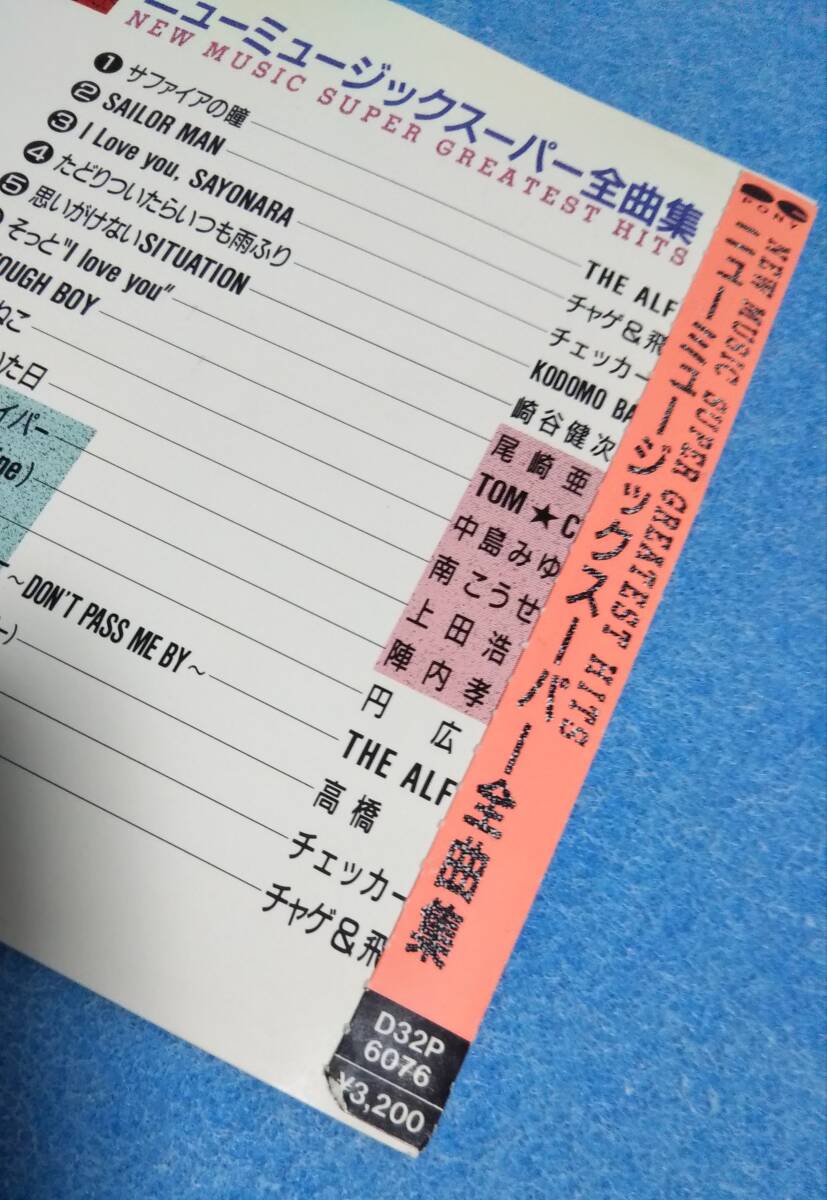 ニューミュージックスーパー全曲集
NEW MUSIC SUPER GREATEST HITS
❶ サファイアの瞳 THE ALF
❷ SAILOR MAN チャゲ&飛
❸ I Love you, SAYONARA チェッカー
❹ たどりついたらいつも雨ふり KODOMO BA
❺ 思いがけないSITUATION 崎谷健次
そっと"I love you" 尾崎亜
OUGH BOY TOM★C
ねこ 中島みゆ
た日 南こうせ
イパー 上田浩
ine) 陣内孝
円 広
~DON'T PASS ME BY~ THE ALF
ー) 高橋
チェッカー
チャゲ&飛
PONY
NEW MUSIC SUPER GREATEST HITS
ニューミュージックスーパー全曲集
D32P
6076
¥3,200